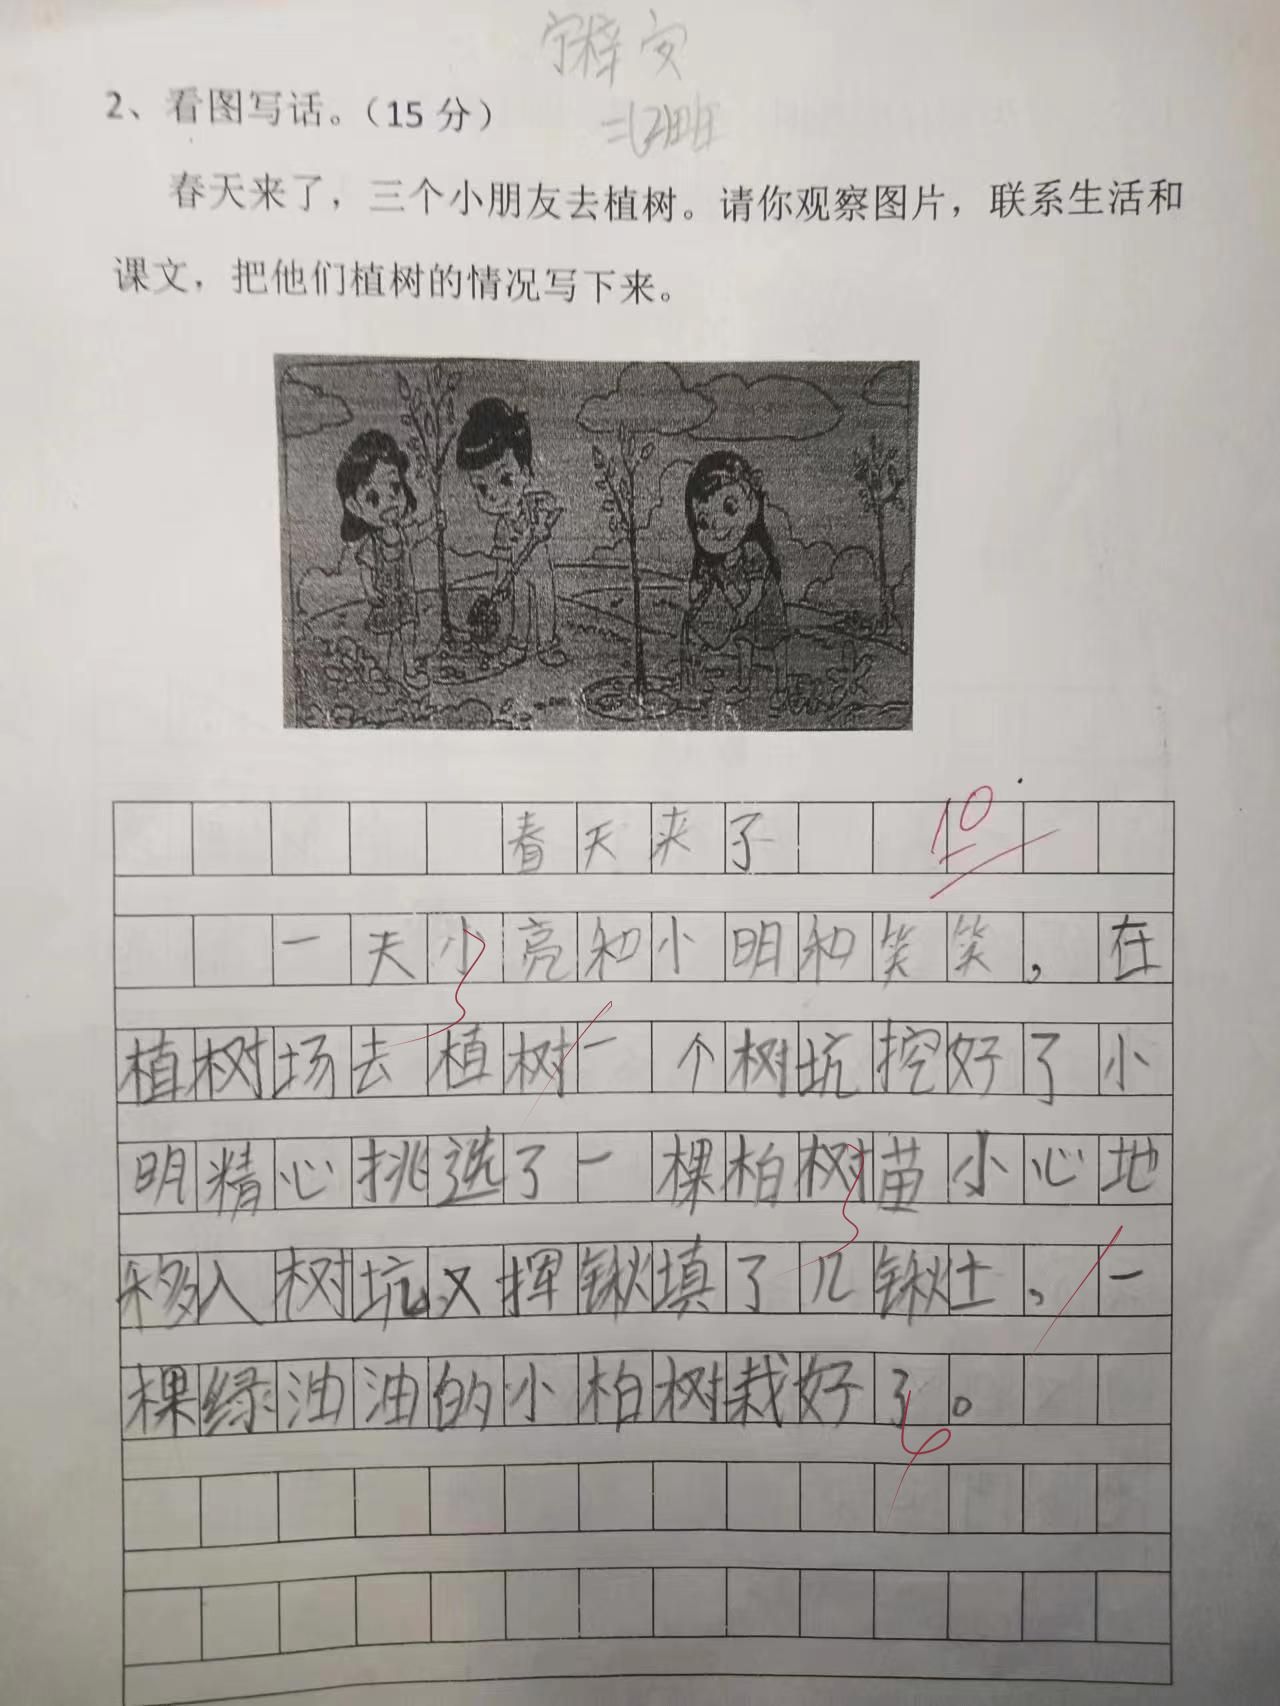 宁梓安
2、看图写话。（15 分）
二（2）班
春天来了，三个小朋友去植树。请你观察图片，联系生活和
课文，把他们植树的情况写下来。
春天来了
10
一天小亮和小明和笑笑，在
植树场去植树一个树坑挖好了小
明精心挑选了一棵柏树苗小心地
移入树坑又挥锹填了几锹土，一
棵绿油油的小柏树栽好了。